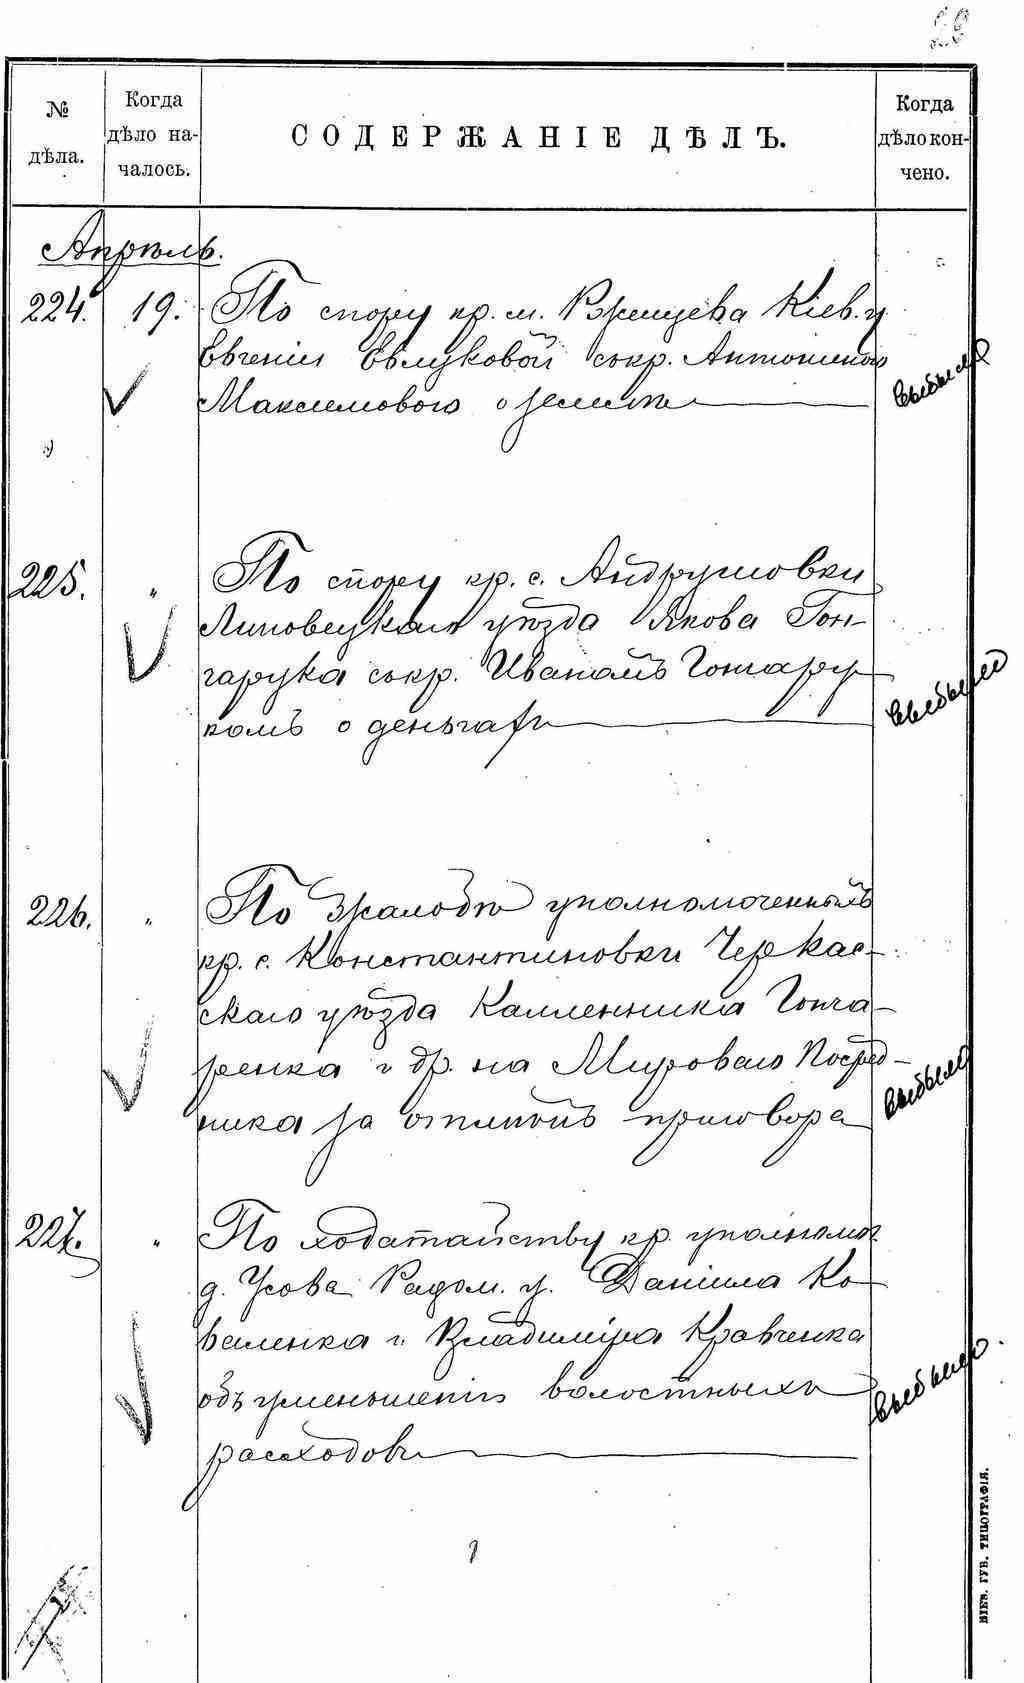 № дѣла.
Когда дѣло началось.
СОДЕРЖАНІЕ ДѢЛЪ.
Когда дѣло кончено.
Апрѣль.
224. 19. По спору кр. м. Ржищева Кіев. у
Евгеніи с кр. Антономъ
Максимового о землѣ
выбыло
225. " По спору кр. с. Андрушовки
Липовецкаго уѣзда Якова Гон-
чарука съ кр. Иваномъ Гончару-
комъ о деньгахъ
выбыло
226. " По жалобѣ уполномоченныхъ
кр. с. Константиновки Черкас-
скаго уѣзда Калленника Гонча-
ренка и др. на Мироваго Посред-
ника за отмѣной приговора
выбыло
227. " По ходатайству кр. уполномоч
д. Усова Радом. у. Даніила Ко-
валенка и Владиміра Кравченка
объ уменьшеніи волостныхъ
расходовъ
выбыло
КІЕВ. ГУБ. ТИПОГРАФІЯ.